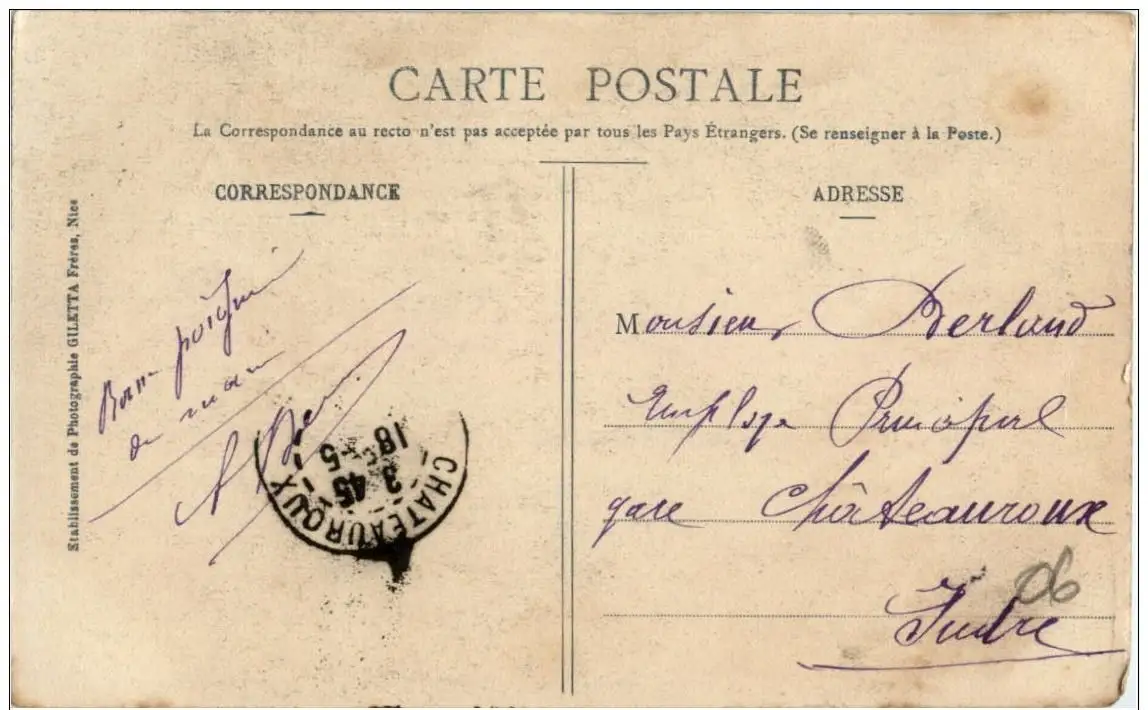 CARTE POSTALE
La Correspondance au recto n'est pas acceptée par tous les Pays Étrangers. (Se renseigner à la Poste.)
CORRESPONDANCE
Etablissement de Photographie GILETTA Frères, Nice
Bonne poigné
de main
CHATEAUROUX
3 45
18
5
ADRESSE
Monsieur Derland
Employe Principal
gare Châteauroux
Indre
06